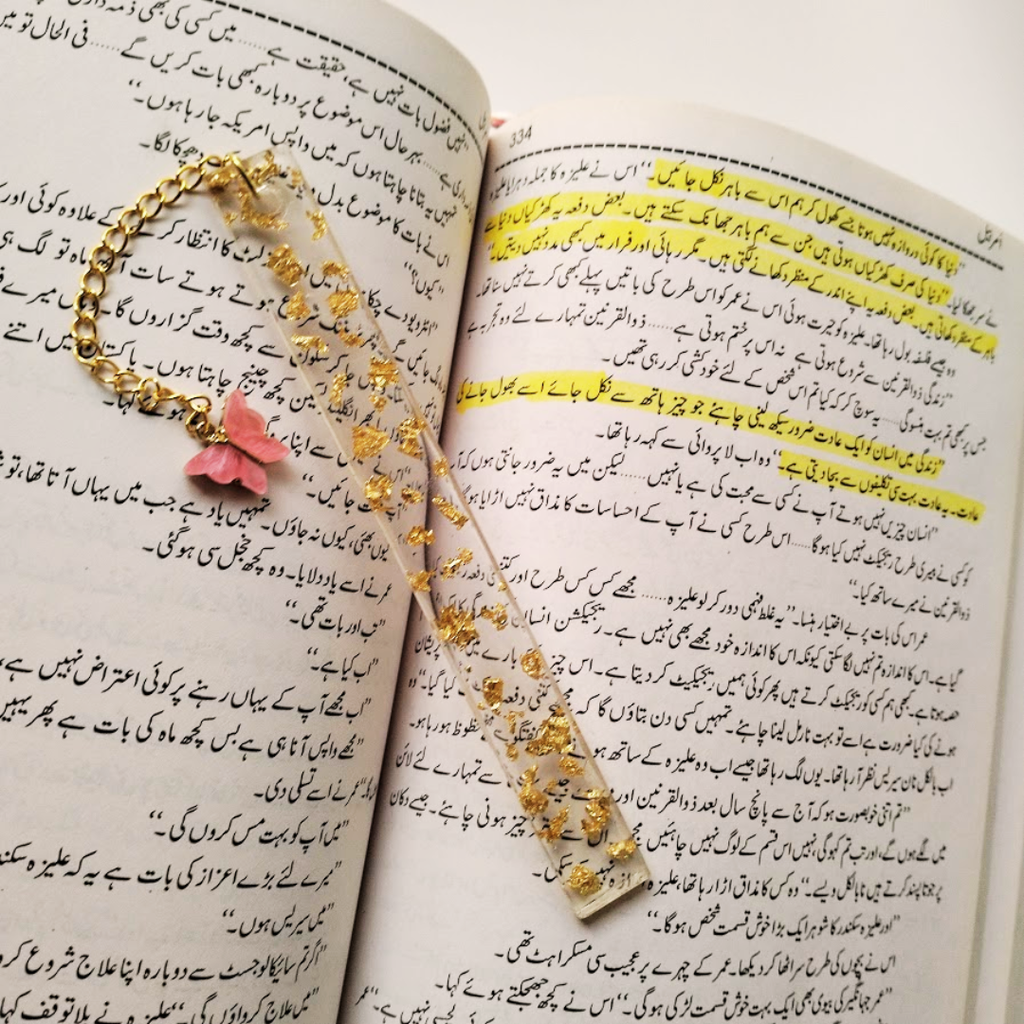 334
امربیل
"دنیا کا کوئی دروازہ نہیں ہوتا جسے کھول کر ہم اس سے باہر نکل جائیں۔" اس نے علیزہ کا جملہ دہرایا علیزہ
نے سر جھکا لیا۔ "دنیا کی صرف کھڑکیاں ہوتی ہیں جن سے ہم باہر جھانک سکتے ہیں۔ بعض دفعہ یہ کھڑکیاں دنیا سے
باہر کے منظر دکھاتی ہیں۔ بعض دفعہ یہ اپنے اندر کے منظر دکھانے لگتی ہیں۔ مگر رہائی اور فرار میں کبھی مدد نہیں دیتیں۔"
وہ جیسے فلسفہ بول رہا تھا۔ علیزہ کو حیرت ہوئی اس نے عمر کو اس طرح کی باتیں پہلے کبھی کرتے نہیں سنا تھا۔
"زندگی ذوالقرنین سے شروع ہوتی ہے نہ اس پر ختم ہوتی ہے...... ذوالقرنین تمہارے لئے وہ تجربہ ہے
جس پر کبھی تم بہت ہنسو گی...... یہ سوچ کر کہ کیا تم اس شخص کے لئے خودکشی کر رہی تھیں۔
"زندگی میں انسان کو ایک عادت ضرور سیکھ لینی چاہئے جو چیز ہاتھ سے نکل جائے اسے بھول جانے کی
عادت۔ یہ عادت بہت سی تکلیفوں سے بچا دیتی ہے۔" وہ اب لا پروائی سے کہہ رہا تھا۔
"انسان چیزیں نہیں ہوتے آپ نے کسی سے محبت کی ہے یا نہیں...... لیکن میں یہ ضرور جانتی ہوں کہ آپ
کو کسی نے میری طرح ریجیکٹ نہیں کیا ہوگا...... اس طرح کسی نے آپ کے احساسات کا مذاق نہیں اڑایا ہوگا
ذوالقرنین نے میرے ساتھ کیا۔"
عمر اس کی بات پر بے اختیار ہنسا۔ "یہ غلط فہمی دور کر لو علیزہ...... مجھے کس کس طرح اور کتنی دفعہ
گیا ہے۔ اس کا اندازہ تم نہیں لگا سکتی کیونکہ اس کا اندازہ خود مجھے بھی نہیں ہے۔ ریجیکشن انسان زندگی کا ایک
حصہ ہوتا ہے۔ کبھی ہم کسی کو ریجیکٹ کرتے ہیں پھر کوئی ہمیں ریجیکٹ کر دیتا ہے۔ اس چیز کے بارے میں پریشان
ہونے کی کیا ضرورت ہے اسے تو بہت نارمل لینا چاہئے۔ تمہیں کسی دن بتاؤں گا کہ مجھے کتنی دفعہ کیا گیا۔" وہ
اب بالکل نان سیریس نظر آ رہا تھا۔ یوں لگ رہا تھا جیسے اب وہ علیزہ کے ساتھ ہونے گفتگو محظوظ ہو رہا ہو۔
"تم اتنی خوبصورت ہو کہ آج سے پانچ سال بعد ذوالقرنین اور جیسے سے تمہارے لئے لائن
میں لگے ہوں گے، اور تب تم کہو گی نہیں اس قسم کے لوگ نہیں چاہئیں چیز ہونی چاہئے۔ جیسے دکان
پر جوتا پسند کرتے ہیں نا بالکل ویسے۔" وہ کس کا مذاق اڑا رہا تھا، علیزہ اندازہ نہیں کر سکی۔
"اور علیزہ سکندر کا شوہر ایک بڑا خوش قسمت شخص ہوگا۔"
اس نے بچوں کی طرح سر اٹھا کر دیکھا۔ عمر کے چہرے پر عجیب سی مسکراہٹ تھی۔
"عمر جہانگیر کی بیوی بھی ایک بہت خوش قسمت لڑکی ہوگی۔" اس نے کچھ جھجکتے ہوئے کہا۔
میں کسی کی بھی ذمہ داری
"نہیں فضول بات نہیں ہے، حقیقت ہے......
داری ہے...... بہرحال اس موضوع پر دوبارہ کبھی بات کریں گے...... فی الحال تو میں
تمہیں یہ بتانا چاہتا ہوں کہ میں واپس امریکہ جا رہا ہوں۔"
اس نے بات کا موضوع بدل دھچکا لگا۔
"کیوں؟"
"انٹرویو دے چکا میں لسٹ کا انتظار کرنے کے علاوہ کوئی اور
ٹریننگ شروع ہوتے ہوتے سات آٹھ ماہ تو لگ ہی
جائیں گے جا کر سکون سے کچھ وقت گزاروں گا۔
پھر انگلینڈ میں کچھ چینج چاہتا ہوں۔ پاکستان میں اتنے
"جائیں۔"
"یوں بھئی، کیوں نہ جاؤں۔ تمہیں یاد ہے جب میں یہاں آتا تھا، تو
عمر نے اسے یاد دلایا۔ وہ کچھ خجل سی ہو گئی۔
"تب اور بات تھی۔"
"اب کیا ہے۔"
"اب مجھے آپ کے یہاں رہنے پر کوئی اعتراض نہیں ہے،
"مجھے واپس آنا ہی ہے بس کچھ ماہ کی بات ہے پھر یہیں
عمر نے اسے تسلی دی۔
"میں آپ کو بہت مس کروں گی۔"
"میرے لئے بڑے اعزاز کی بات ہے یہ کہ علیزہ سکندر
"میں سیریس ہوں۔"
"اگر تم سائیکالوجسٹ سے دوبارہ اپنا علاج شروع کرو
"میں علاج کرواؤں گی۔" علیزہ نے بلا توقف کہا۔